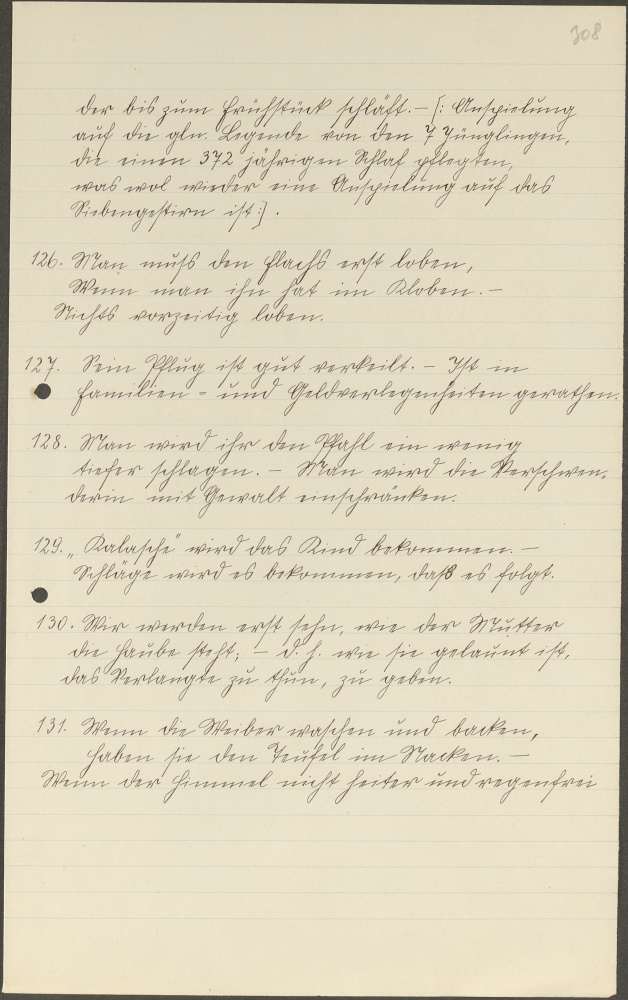 308
der bis zum Frühstück schläft. – [: Anspielung
auf die gln. Legende von den 7 Jünglingen,
die einen 372 jährigen Schlaf pflegten,
was wol wieder eine Anspielung auf das
Siebengestirn ist :].
126. Man muſs den Flachs erst loben,
Wenn man ihn hat im Kloben. –
Nichts vorzeitig loben.
127. Sein Pflug ist gut verkeilt. – Ist in
Familien- und Geldverlegenheiten gerathen.
128. Man wird ihr den Pfahl ein wenig
tiefer schlagen. – Man wird die Verschwen-
derin mit Gewalt einschränken.
129. „Kalasche" wird das Kind bekommen. –
Schläge wird es bekommen, daß es folgt.
130. Wir werden erst sehn, wie der Mutter
die Haube steht; – d. h. wie sie gelaunt ist,
das Verlangte zu thun, zu geben.
131. Wenn die Weiber waschen und backen,
haben sie den Teufel im Nacken. –
Wenn der Himmel nicht heiter und regenfrei